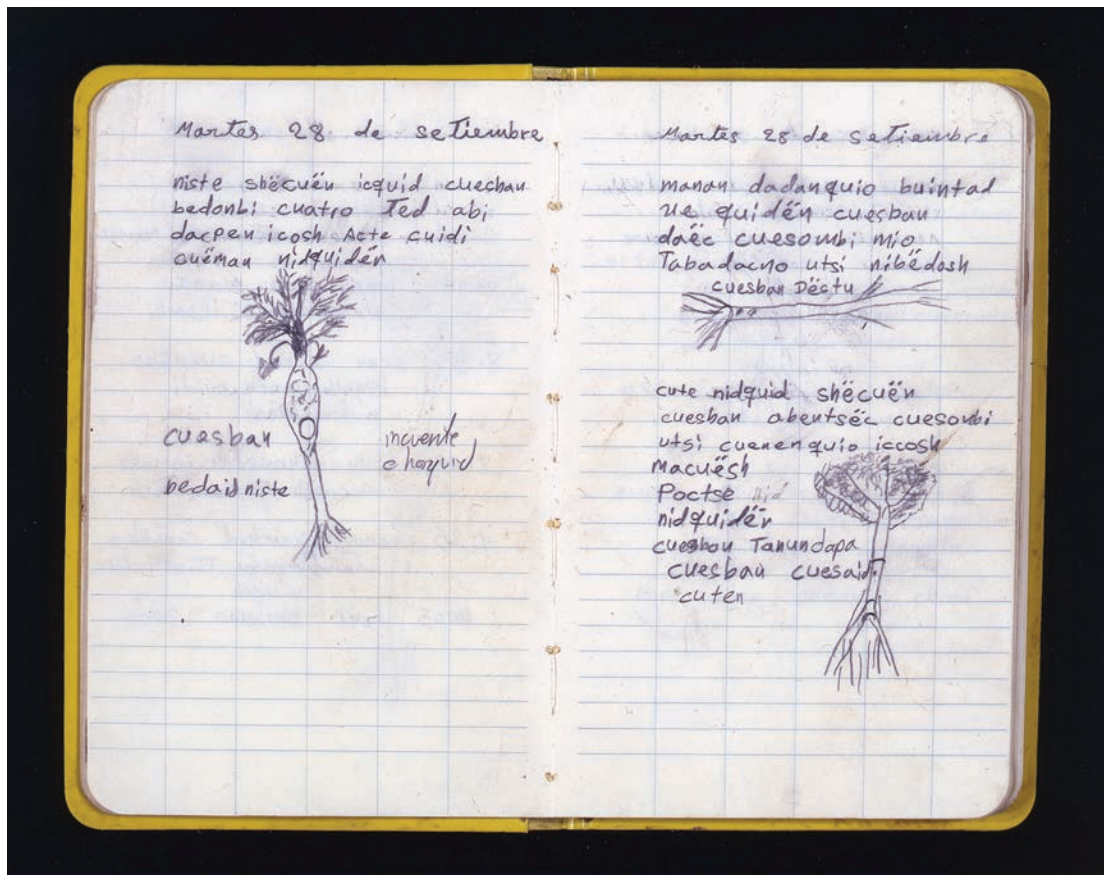 Martes 28 de setiembre
niste shëcuën icquid cuesban
bedonbi cuatro Ted abi
dacpen icosh Acte cuidi
cuëman nidquidën
cuesban
bedaid niste
Martes 28 de setiembre
manan dadanquio buintad
ue quidën cuesban
daëc cuesombi mio
Tabadacno utsi nibëdosh
cuesban Dëctu
cute nidquid shëcuën
cuesban abentsëc cuesonbi
utsi cuenenquio iccosh
macuësh
Poctse
nidquidën
cuesban Tanundapa
cuesban cuesaid
cuten